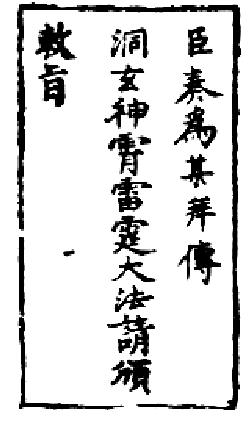 臣奏為某拜傳
洞玄神霄雷霆大法請頒
敕旨